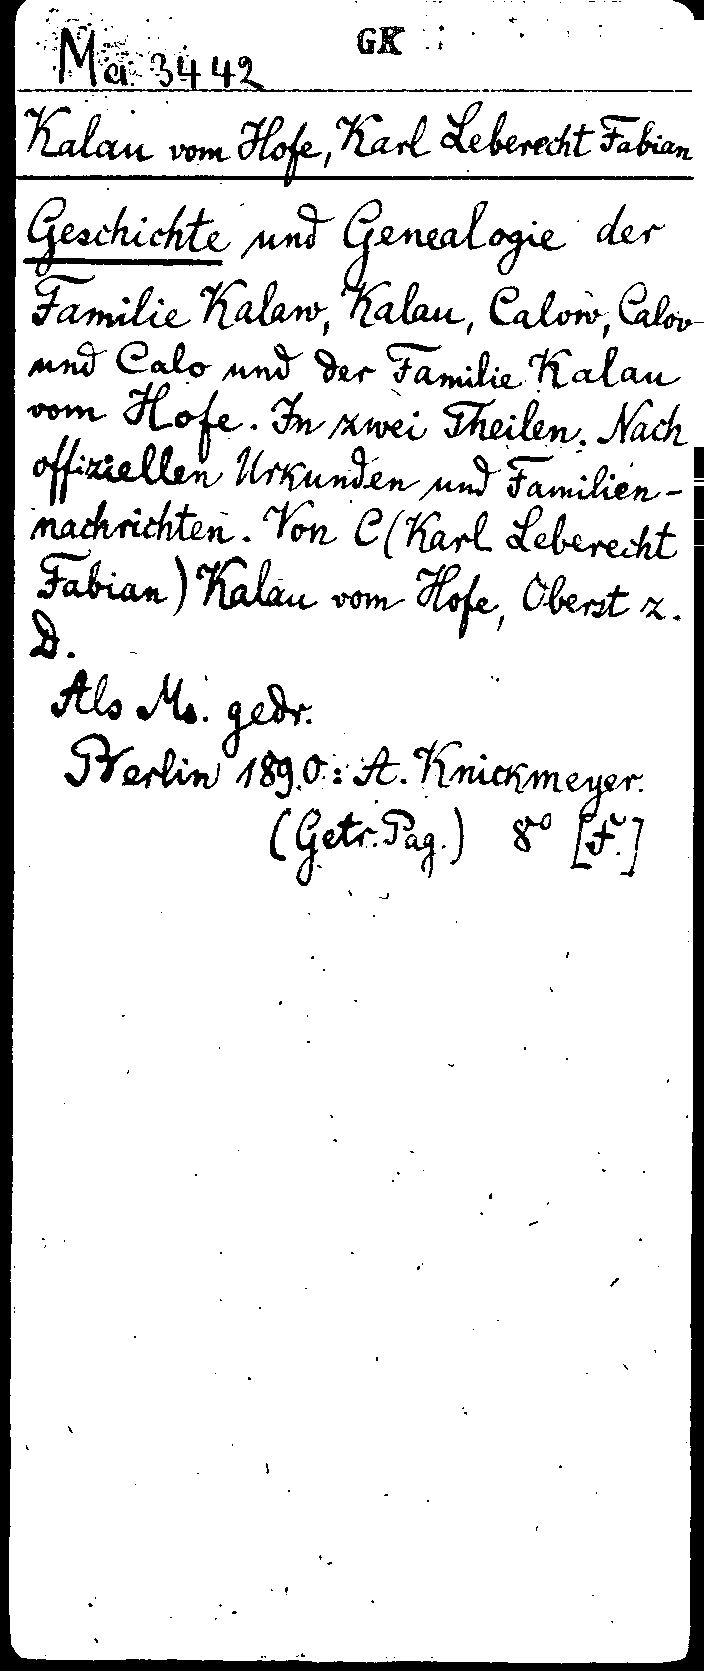 Ma 3442
GK
Kalau vom Hofe, Karl Leberecht Fabian
Geschichte und Genealogie der
Familie Kalaw, Kalau, Calow, Calov
und Calo und der Familie Kalau
vom Hofe. In zwei Theilen. Nach
offiziellen Urkunden und Familien-
nachrichten. Von C(Karl Leberecht
Fabian) Kalau vom Hofe, Oberst z.
D.
Als Ms. gedr.
Berlin 1890: A. Knickmeyer.
(Getr. Pag.) 8° [F.]